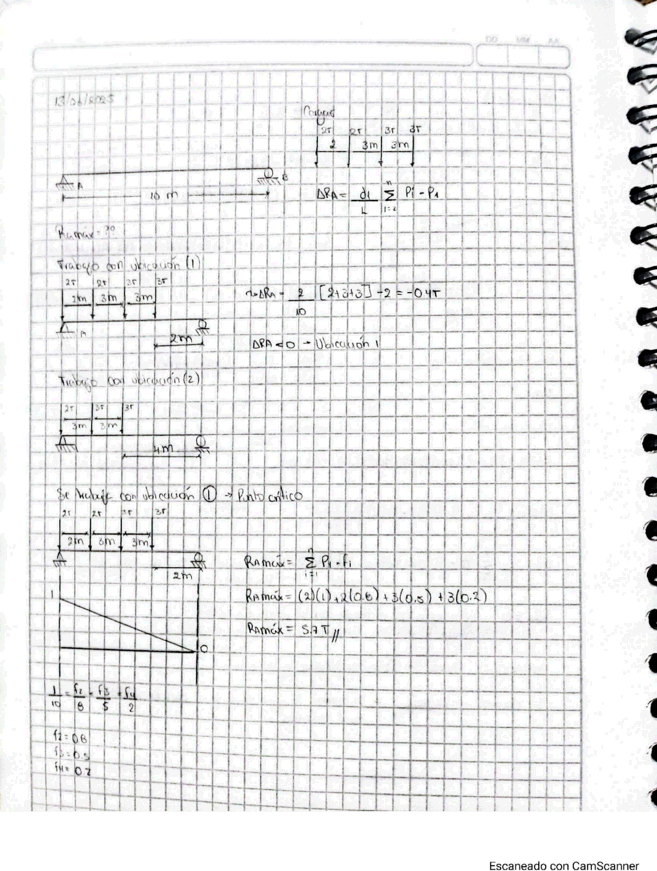 AA MM DD
Cargas
2T 2T 3T 3T
2 3m 3m
A B
10 m
ΔRA = d1/L Σ Pi - P1
n
i=2
RAmax = ??
Trabajo con ubicación (1)
2T 2T 3T 3T
2m 3m 3m
A
2m
ΔRA = 2/10 [2+3+3] - 2 = -0.4T
ΔRA < 0 → Ubicación 1
Trabajo con ubicación (2)
2T 3T 3T
3m 3m
4m
Se trabaja con ubicación ① → Punto crítico
2T 2T 3T 3T
2m 3m 3m
2m
1
0
RAmáx = Σ Pi · fi
n
i=1
RAmáx = (2)(1) + 2(0.8) + 3(0.5) + 3(0.2)
RAmáx = 5.7 T //
1/10 = f2/8 = f3/5 = f4/2
f2 = 0.8
f3 = 0.5
f4 = 0.2
Escaneado con CamScanner